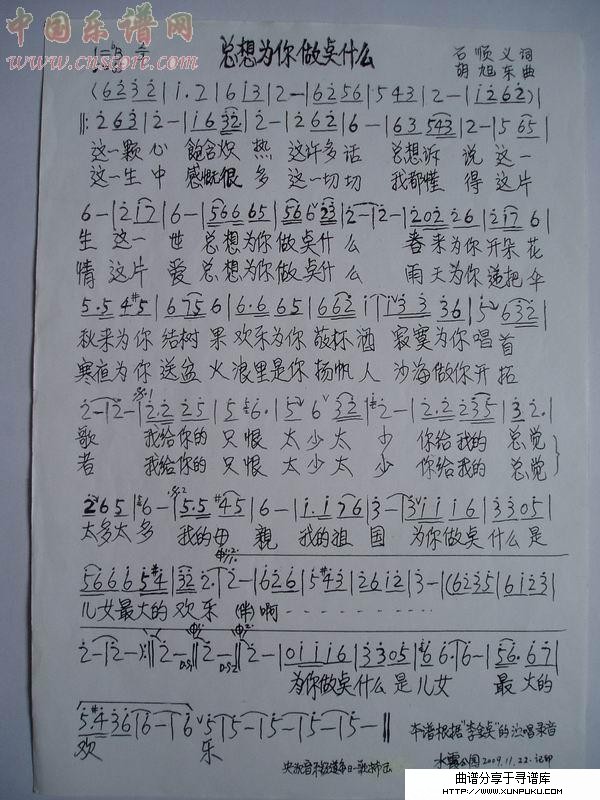 中国乐谱网
www.cnscore.com
总想为你做点什么
石顺义词
胡旭东曲
(6 2 3 2 | i. 2 | 6 i 3 | 2 - | 6 2 5 6 | 5 4 3 | 2 - | i 2 6 2) |
‖: 2 6 3 | 2 - | i 6 3 2 | 2 - | 2 6 2 | 6 - | 6 3 5 4 3 | 2 - | 5 6 5 |
这一颗心 饱含炽 热 这许多话 总想诉 说 这一
这一生中 感慨很 多 这一切切 我都懂 得 这片
6 - | 2 i 7 | 6 - | 5 6 6 6 5 | 5 6 6 2 3 | 2 - | 2 - | 2 0 2 2 6 | 2 i 7 6 |
生 这一 世 总想为你做点什 么 春来为你开朵 花
情 这片 爱 总想为你做点什 么 雨天为你递把 伞
5. 5 4 #5 | 6 7 5 6 | 6. 6 6 5 | 6 6 2 i | i 3 3 3 6 | 5 6 3 2 |
秋来为你 结树 果 欢乐为你 敬杯 酒 寂寞为你 唱首
寒夜为你 送盆 火 浪里是你 扬帆 人 沙海做你 开拓
2 - | 2 - | 2. 2 2 5 | 5 6. | 5 6 3 2 | 2 - | 2. 2 2 3 5 | 3 2. |
歌 我给你的 只恨 太少太 少 你给我的 总觉
者 我给你的 只恨 太少太 少 你给我的 总觉
2 6 5 | 6 - | 5. 5 #4 5 | 6 - | i. i 7 6 | 3 - | 3 i i i 6 | 3 3 0 5 |
太多太 多 我的母 亲 我的祖 国 为你做点 什么是
5 6 6 6 5 #4 | 3 2 2. | 2 - | 6 2 6 | 5 #4 3 | 2 6 i 2 | 3 - | (6 2 3 5 | 6 i 2 3 |
儿女最大的 欢乐 (伴)啊
2 - | 2 - ) :‖ 2 - ‖ 2 - ‖ 2 - | 0 i i i 6 | 3 3 0 5 | 6 6. | 6 - | 5 6. 6 7 |
D.S.1 D.S.2
为你做点 什么 是 儿女 最 大的
5. #4 3 6 | 6 - | 6 5 | 5 - | 5 - | 5 - | 5 - ‖
欢 乐
本谱根据"李金兵"的演唱录音
水云公园2009.11.22.记印
曲谱分享于寻谱库
https://www.xunpuku.com